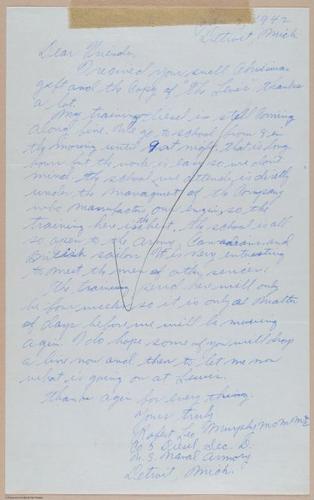 1942
Detroit, Mich
Dear Friends,
I received your swell Christmas
gift and the copy of "The Lever" thanks
a lot.
My training in Diesel is still coming
along fine. We go to school from 9 in
the morning until 9 at night, that is long
hour but the work is easy so we don't
mind. The school we attend, is directly
under the managment of the Company
who manufactor our engin, so the
training here is the best. The school is all
so open to the Army, Canadians and
British sailor. It is very intresting
to meet the men of other services.
The training period here will only
be four weeks so it is only a matter
of days before we will be moving
again. I do hope some of you will drop
a line now and then to let me now
what is going on at Lewis.
Thanks agen for every thing.
Yours truly
Robert Leo Murphy MoMM2/c
Co 5 Diesel, Sec. D.
U.S. Naval Armory
Detroit, Mich.